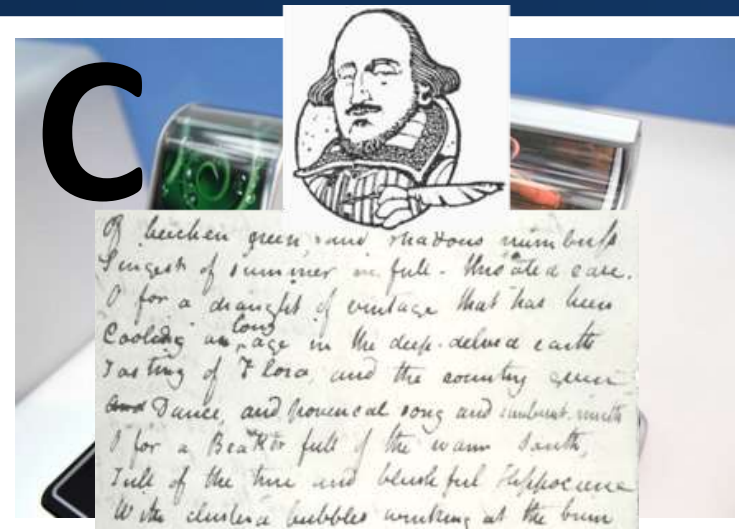 C
Of beechen green, and shadows numberless
Singest of summer in full-throated ease.
O for a draught of vintage that has been
Cooling an long age in the deep-delved earth
Tasting of Flora, and the country green
And Dance, and provencal song and sunburnt mirth
O for a Beaker full of the warm South,
Full of the true and blushful Hippocrene
With cluster'd bubbles winking at the brim